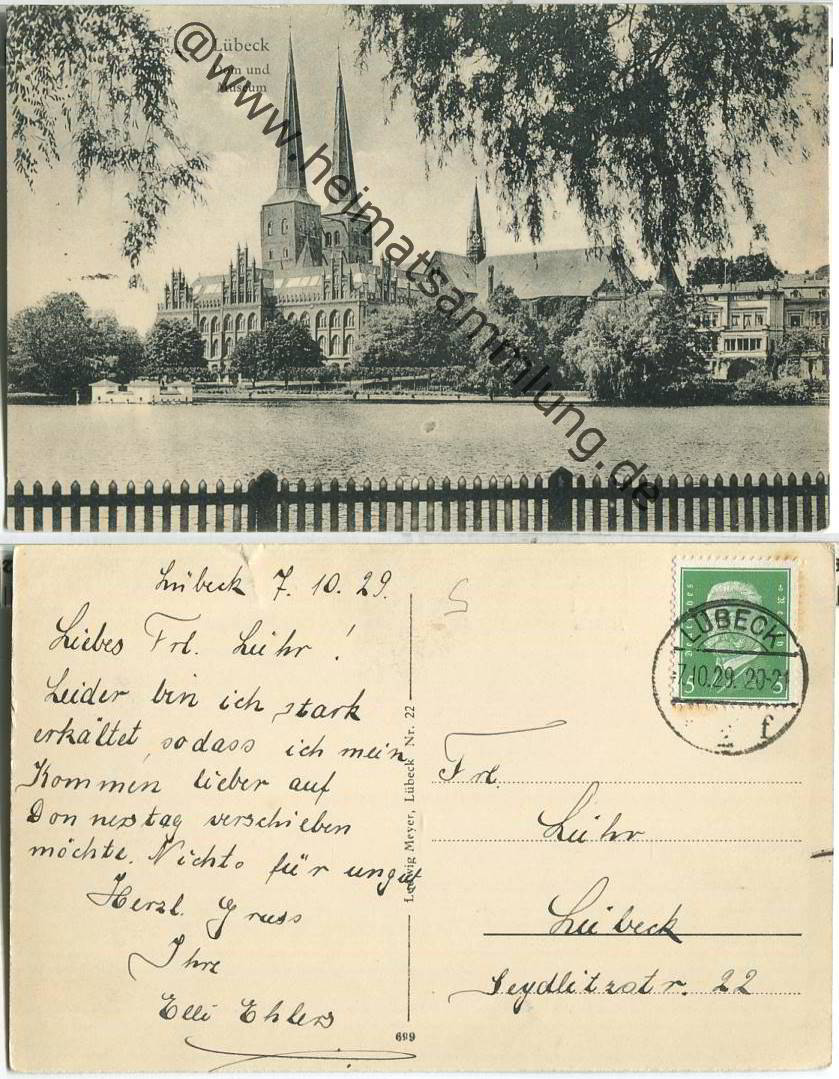 Lübeck
Dom und
Museum
@www.heimatsammlung.de
Lübeck 7.10.29.
Liebes Frl. Lühr!
Leider bin ich stark
erkältet, sodass ich mein
Kommen lieber auf
Donnerstag verschieben
möchte. Nichts für ungut
Herzl. Gruss
Ihre
Elli Ehlers
Ludwig Meyer, Lübeck Nr. 22
699
5
LÜBECK
-7.10.29. 20-21
f
5 5
Frl.
Lühr
Lübeck
Seydlitzstr. 22